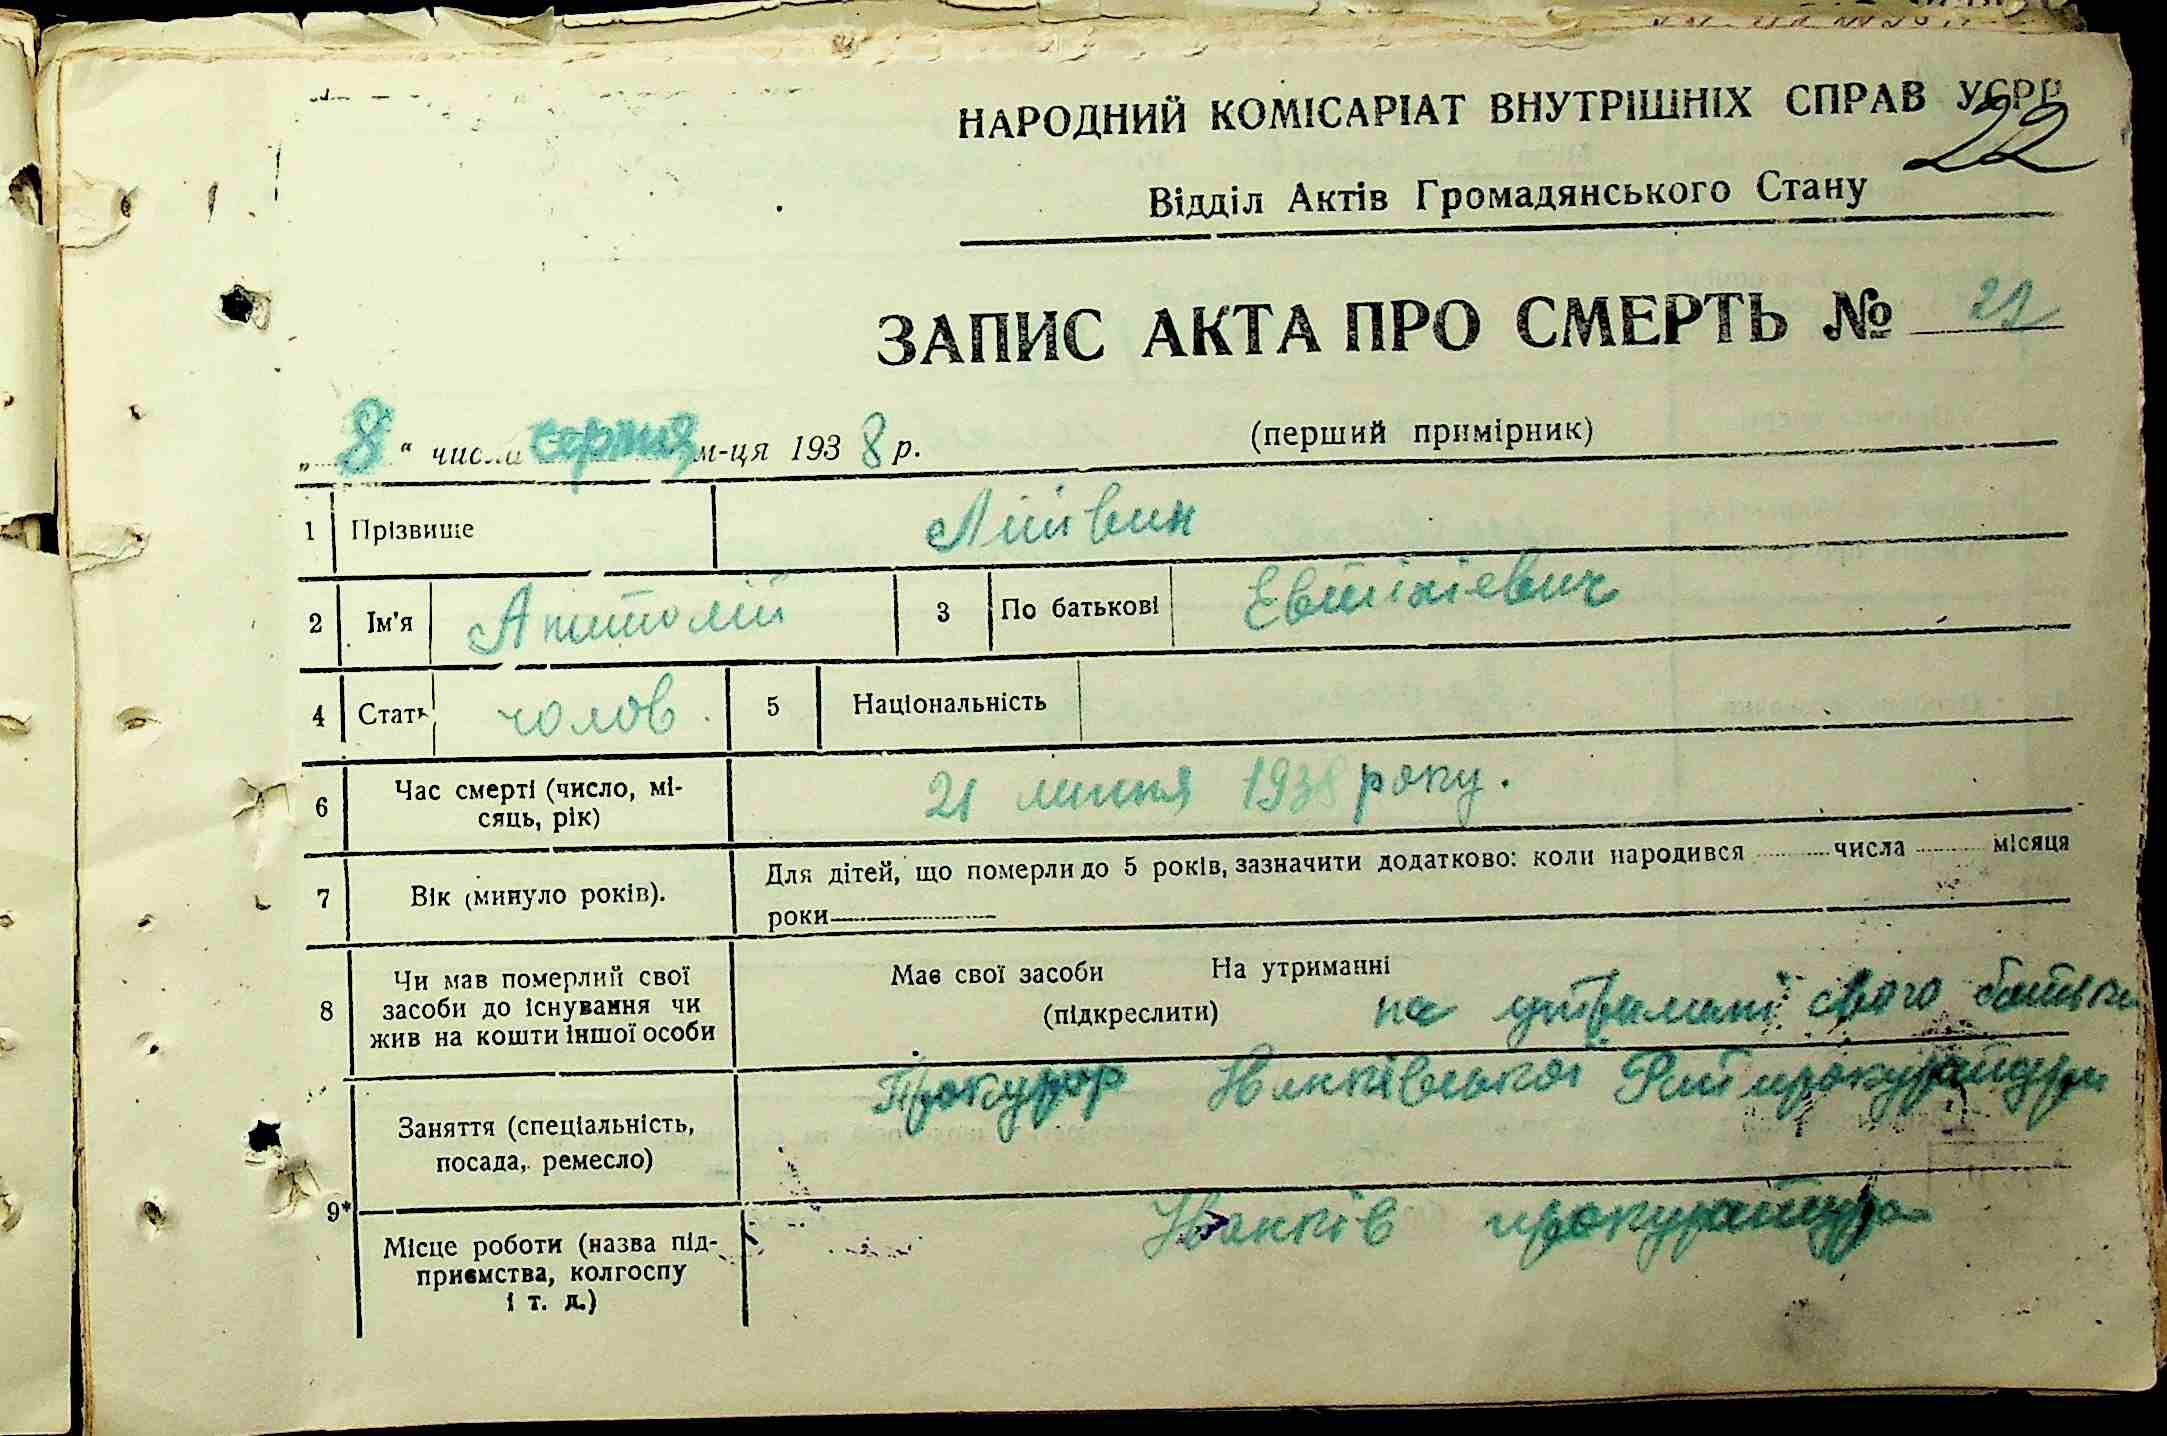 НАРОДНИЙ КОМІСАРІАТ ВНУТРІШНІХ СПРАВ УСРР
22
Відділ Актів Громадянського Стану
ЗАПИС АКТА ПРО СМЕРТЬ № 21
„ 8 “ числа серпня м-ця 1938 р. (перший примірник)
1 Прізвище Литвин
2 Ім'я Анатолій 3 По батькові
4 Стать чолов. 5 Національність
6 Час смерті (число, мі-
сяць, рік) 21 липня 1938 року.
7 Вік (минуло років). Для дітей, що померли до 5 років, зазначити додатково: коли народився числа місяця
роки
8 Чи мав померлий свої
засоби до існування чи
жив на кошти іншої особи
Має свої засоби На утриманні
(підкреслити) на утримані свого батька
Заняття (спеціальність,
посада, ремесло) Прокурор Іванківської Райпрокуратури
9*
Місце роботи (назва під-
приємства, колгоспу
і т. д.) Іванків прокуратура